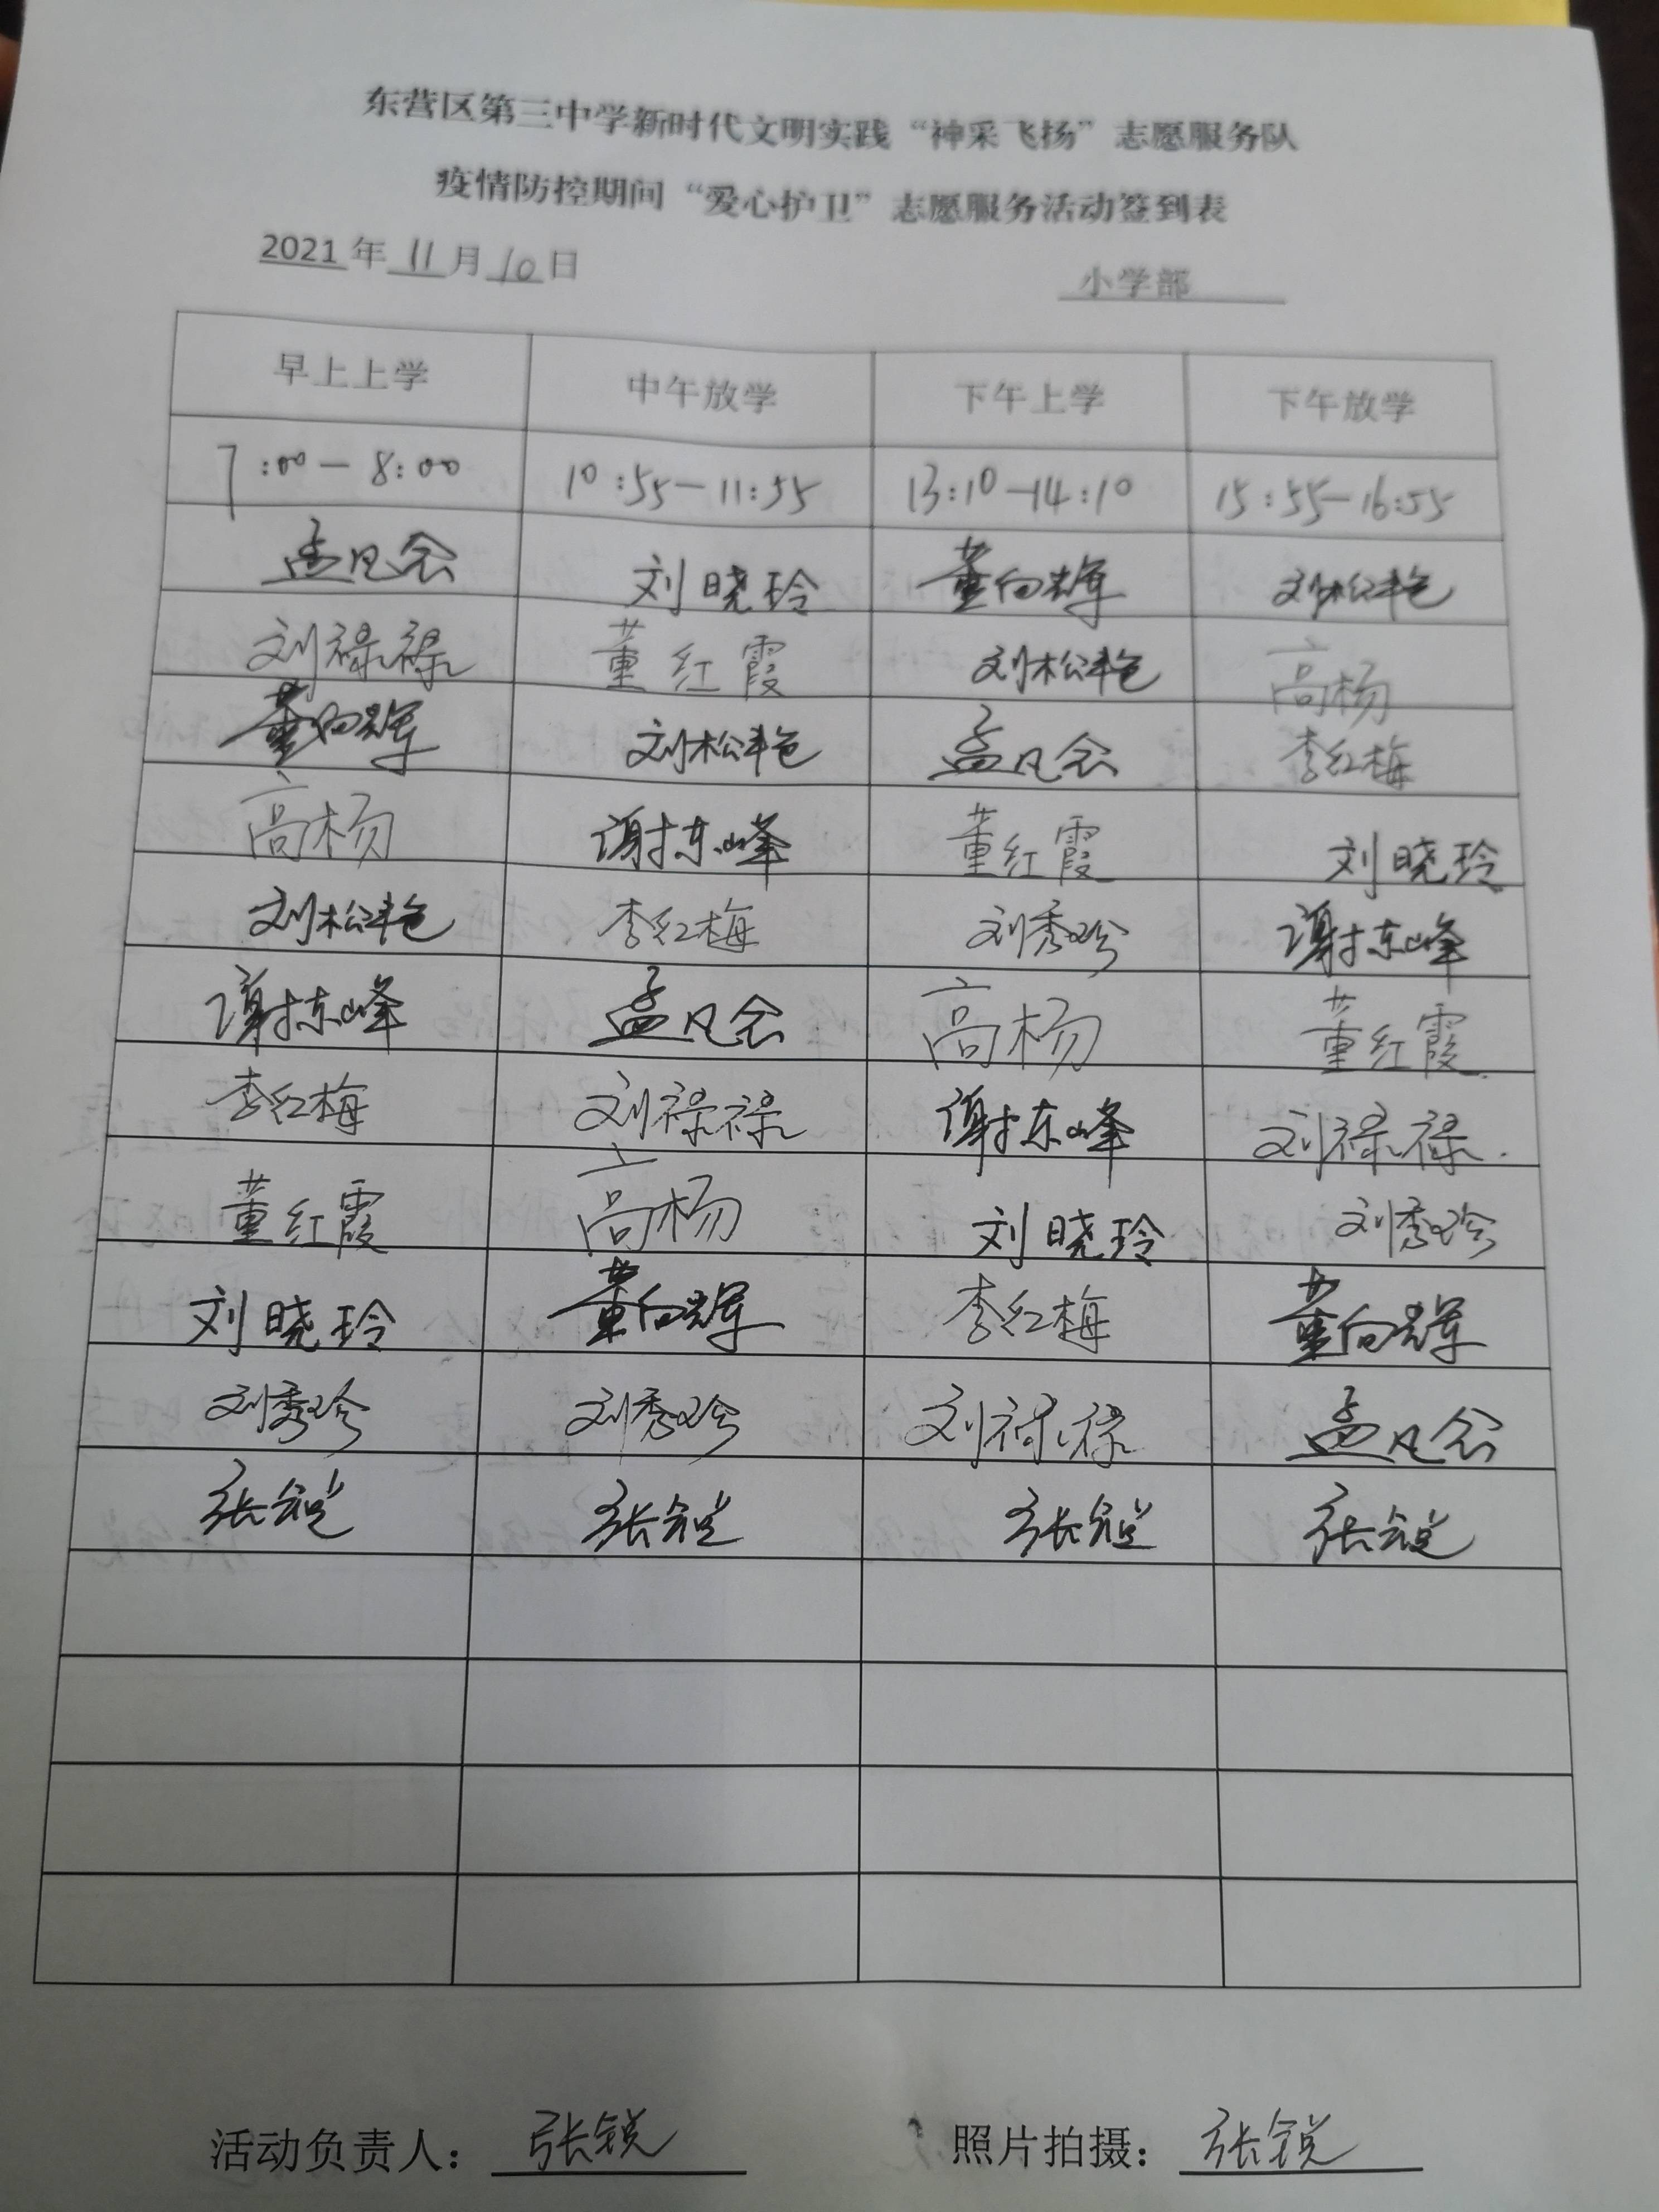 东营区第三中学新时代文明实践“神采飞扬”志愿服务队
疫情防控期间“爱心护卫”志愿服务活动签到表
2021年11月10日 小学部
早上上学 中午放学 下午上学 下午放学
7:00-8:00 10:55-11:55 13:10-14:10 15:55-16:55
孟凡会 刘晓玲 董向辉 刘松艳
刘禄禄 董红霞 刘松艳 高杨
董向辉 刘松艳 孟凡会 李红梅
高杨 谢东峰 董红霞 刘晓玲
刘松艳 李红梅 刘秀珍 谢东峰
谢东峰 孟凡会 高杨 董红霞
李红梅 刘禄禄 谢东峰 刘禄禄.
董红霞 高杨 刘晓玲 刘秀珍
刘晓玲 董向辉 李红梅 董向辉
刘秀珍 刘秀珍 刘禄禄 孟凡会
张锐 张锐 张锐 张锐
活动负责人：张锐 照片拍摄：张锐